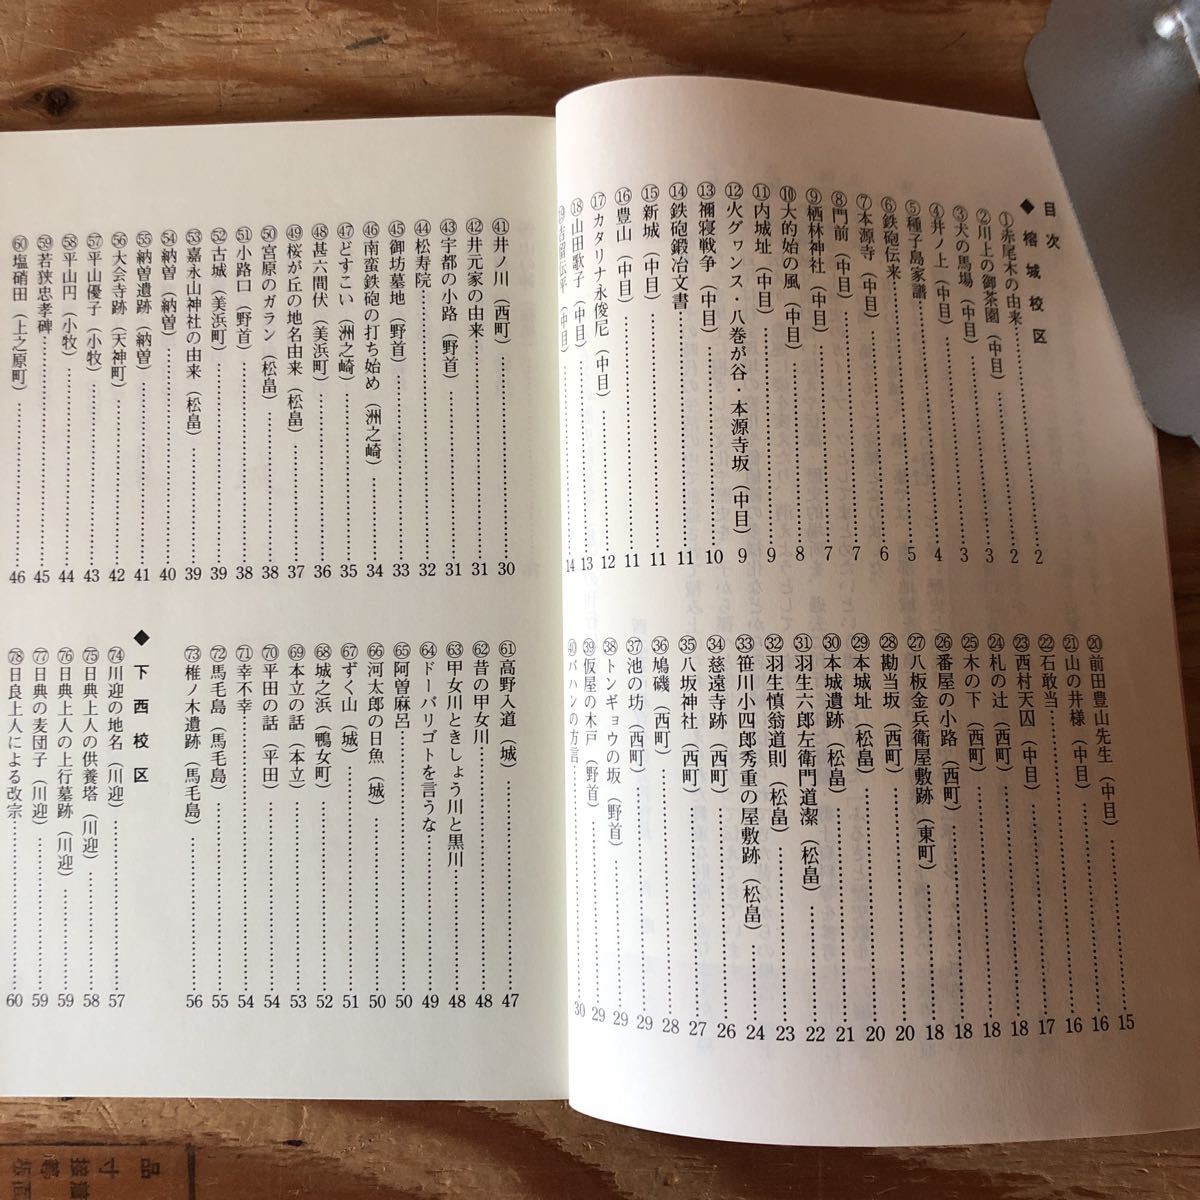 目次
◆榕城校区
①赤尾木の由来……2
②川上の御茶園（中目）……2
③犬の馬場（中目）……3
④井ノ上（中目）……3
⑤種子島家譜……4
⑥鉄砲伝来……5
⑦本源寺（中目）……6
⑧門前（中目）……7
⑨栖林神社（中目）……7
⑩大的始の風（中目）……8
⑪内城址（中目）……9
⑫火グワンス・八巻が谷・本源寺坂（中目）……9
⑬禰寝戦争（中目）……10
⑭鉄砲鍛冶文書……11
⑮新城（中目）……11
⑯豊山（中目）……11
⑰カタリナ永俊尼（中目）……12
⑱山田歌子（中目）……13
⑲留伝平（中目）……14
⑳前田豊山先生（中目）……15
㉑山の井様（中目）……16
㉒石敢当……16
㉓西村天囚（中目）……17
㉔札の辻（西町）……18
㉕木の下（西町）……18
㉖番屋の小路（西町）……18
㉗八板金兵衛屋敷跡（東町）……18
㉘勘当坂（西町）……20
㉙本城址（松畠）……20
㉚本城遺跡（松畠）……21
㉛羽生六郎左衛門道潔（松畠）……22
㉜羽生慎翁道則（松畠）……23
㉝笹川小四郎秀重の屋敷跡（松畠）……24
㉞慈遠寺跡（西町）……26
㉟八坂神社（西町）……27
㊱鳩磯（西町）……28
㊲池の坊（西町）……29
㊳トンギョウの坂（野首）……29
㊴仮屋の木戸（野首）……29
㊵バハンの方言……30
㊶井ノ川（西町）……30
㊷井元家の由来……31
㊸宇都の小路（野首）……31
㊹松寿院……32
㊺御坊墓地（野首）……33
㊻南蛮鉄砲の打ち始め（洲之崎）……34
㊼どすこい（洲之崎）……35
㊽甚六間伏（美浜町）……36
㊾桜が丘の地名由来（松畠）……37
㊿宮原のガラン（松畠）……38
51小路口（野首）……38
52古城（美浜町）……39
53嘉永山神社の由来（松畠）……39
54納曽（納曽）……40
55納曽遺跡（納曽）……41
56大会寺跡（天神町）……42
57平山優子（小牧）……43
58平山円（小牧）……44
59若狭忠孝碑……45
60塩硝田（上之原町）……46
61高野入道（城）……47
62昔の甲女川……48
63甲女川ときしょう川と黒川……48
64ドーバリゴトを言うな……49
65阿曽麻呂……50
66河太郎の日魚（城）……50
67ずく山（城）……51
68城之浜（鴨女町）……52
69本立の話（本立）……53
70平田の話（平田）……54
71幸不幸……54
72馬毛島（馬毛島）……55
73椎ノ木遺跡（馬毛島）……56
◆下西校区
74川迎の地名（川迎）……57
75日典上人の供養塔（川迎）……58
76日典上人の上行墓跡（川迎）……59
77日典の麦団子（川迎）……59
78日良上人による改宗……60